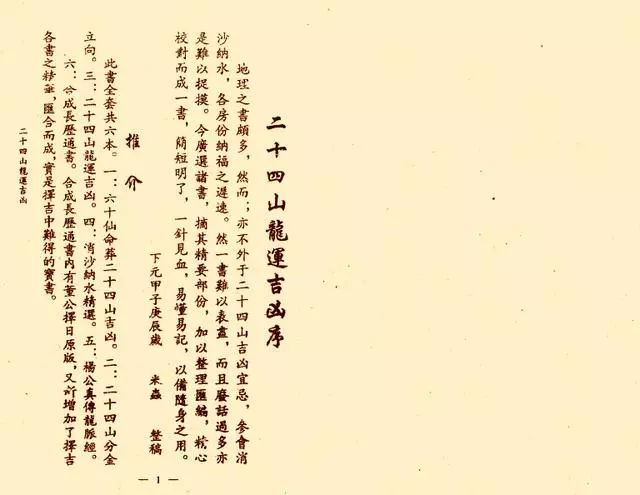 二十四山龍運吉凶序
地理之書頗多，然而；亦不外于二十四山吉凶宜忌，參會消
沙納水，各房份納福之遲速。然一書難以表盡，而且廢話過多亦
是難以捉摸。今廣選諸書，摘其精要部份，加以整理匯編，核心
校對而成一書，簡短明了，一針見血，易懂易記，以備隨身之用。
下元甲子庚辰歲　米蟲　整稿
推介
此書全套共六本。一：六十仙命葬二十四山吉凶。二：二十四山分金
立向。三：二十四山龍運吉凶。四：消沙納水精選。五：楊公真傳龍脈經。
六：合成長歷通書。合成長歷通書內有董公擇日原版，又新增加了擇吉
各書之精華，匯合而成，實是擇吉中難得的寶書。
二十四山龍運吉凶
— 1 —